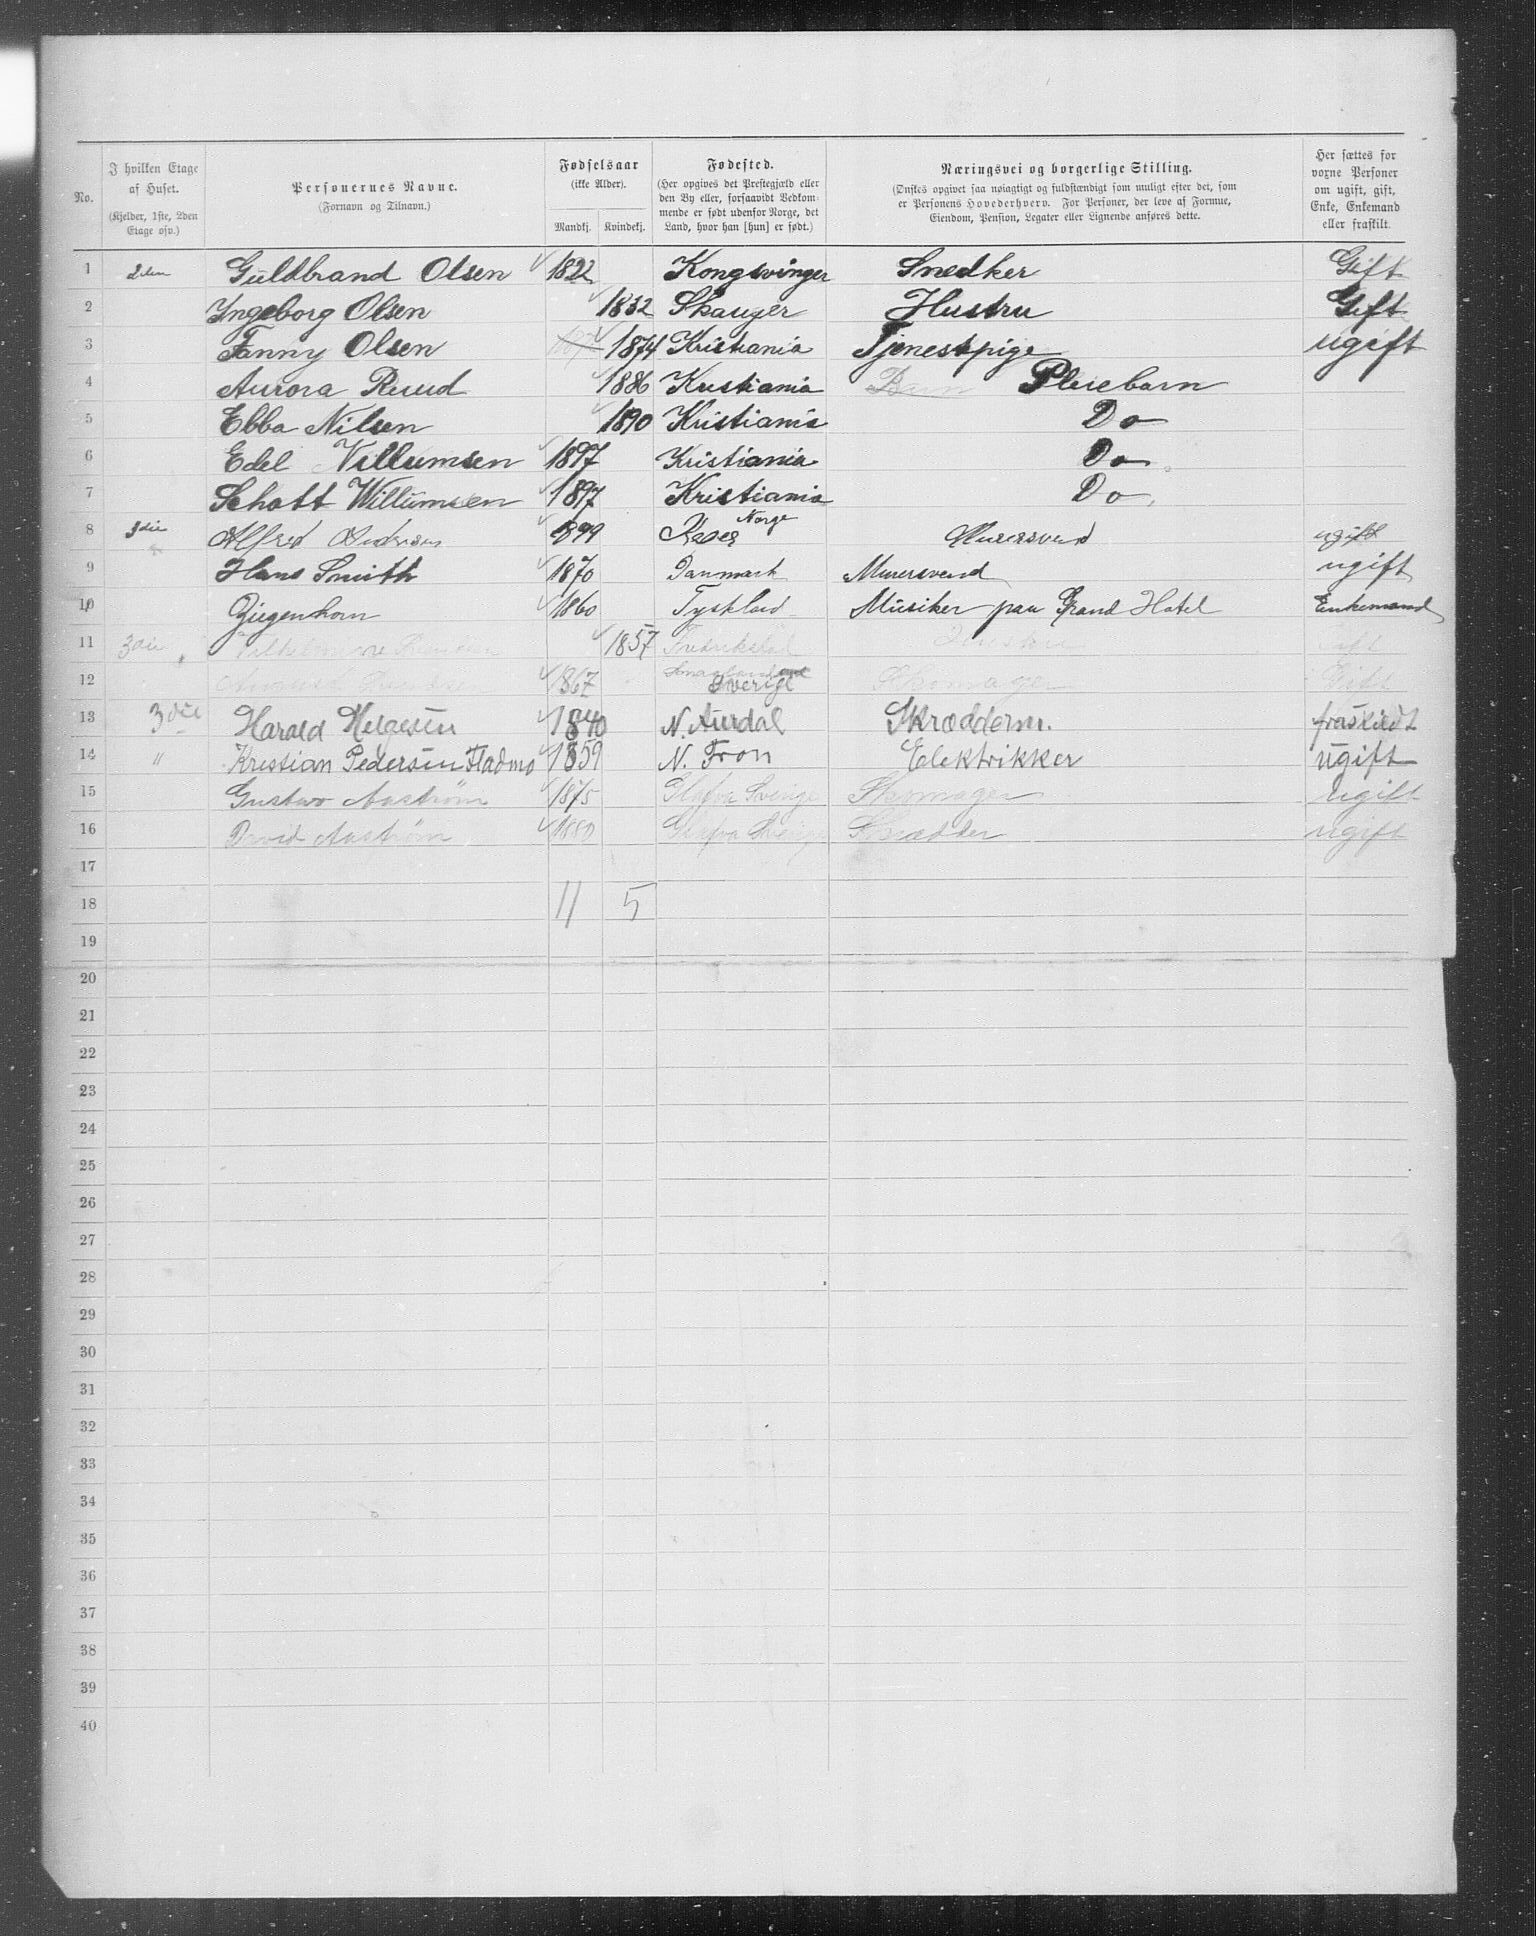 No.
I hvilken Etage af Huset. (Kjelder, 1ste, 2den Etage osv.)
Personernes Navne. (Fornavn og Tilnavn.)
Fødselsaar (ikke Alder). Mandkj. Kvindekj.
Fødested. (Her opgives det Prestegjæld eller den By eller, forsaavidt Vedkommende er født udenfor Norge, det Land, hvor han [hun] er født.)
Næringsvei og borgerlige Stilling. (Ønskes opgivet saa nøiagtigt og fuldstændigt som muligt efter det, som er Personens Hovederhverv. For Personer, der leve af Formue, Eiendom, Pension, Legater eller Lignende anføres dette.)
Her sættes for voxne Personer om ugift, gift, Enke, Enkemand eller fraskilt.
1 2den Guldbrand Olsen 1822 Kongsvinger Snedker Gift
2 Ingeborg Olsen 1832 Skauger Hustru Gift
3 Fanny Olsen 1874 Kristiania Tjenestpige ugift
4 Aurora Ruud 1886 Kristiania Barn Pleiebarn
5 Ebba Nilsen 1890 Kristiania Do
6 Edel Villumsen 1897 Kristiania Do
7 Schott Willumsen 1897 Kristiania Do
8 3die Alfred Andersen 1899 Norge Murersvend ugift
9 Hans Smith 1870 Danmark Murersvend ugift
10 Ziegenhorn 1860 Tyskland Musiker paa Grand Hotel Enkemand
11 3die 1857 Fredrikshal Hustru Gift
12 1867 Smaaland Sverige Skomager Gift
13 3die Harald Helgesen 1840 N. Aurdal Skrædderm. fraskildt
14 " Kristian Pedersen Fladmo 1859 N. Fron Elektrikker ugift
15 Gustav Aastrøm 1875 Glafva Sverige Skomager ugift
16 David Aastrøm 1880 Glafva Sverige Skrædder ugift
17
18 11 5
19
20
21
22
23
24
25
26
27
28
29
30
31
32
33
34
35
36
37
38
39
40